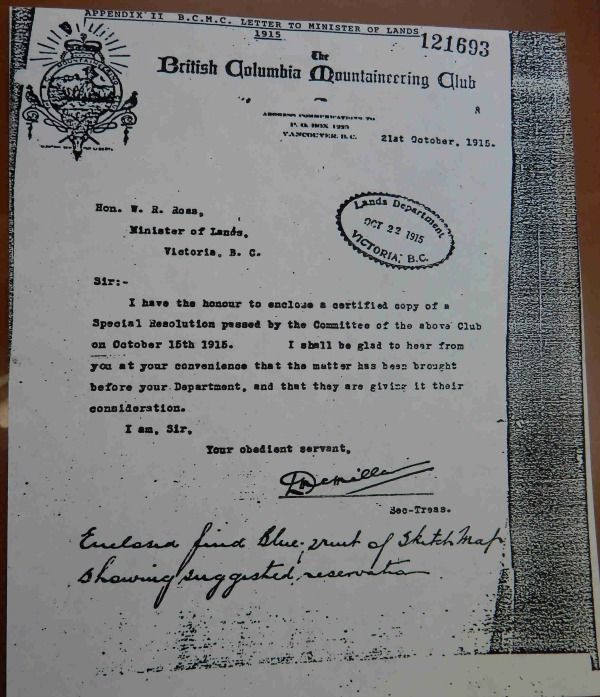 APPENDIX II B.C.M.C. LETTER TO MINISTER OF LANDS
1915
121693
The
British Columbia Mountaineering Club
8
ADDRESS COMMUNICATIONS TO
P. O. BOX
VANCOUVER, B.C.
21st October, 1915.
Hon. W. R. Ross,
Minister of Lands,
Victoria, B. C.
Lands Department
OCT 22 1915
VICTORIA, B.C.
Sir:-
I have the honour to enclose a certified copy of a
Special Resolution passed by the Committee of the above Club
on October 15th 1915. I shall be glad to hear from
you at your convenience that the matter has been brought
before your Department, and that they are giving it their
consideration.
I am, Sir,
Your obedient servant,
Sec-Treas.
Enclosed find Blue-print of Sketch Map
showing suggested reservation